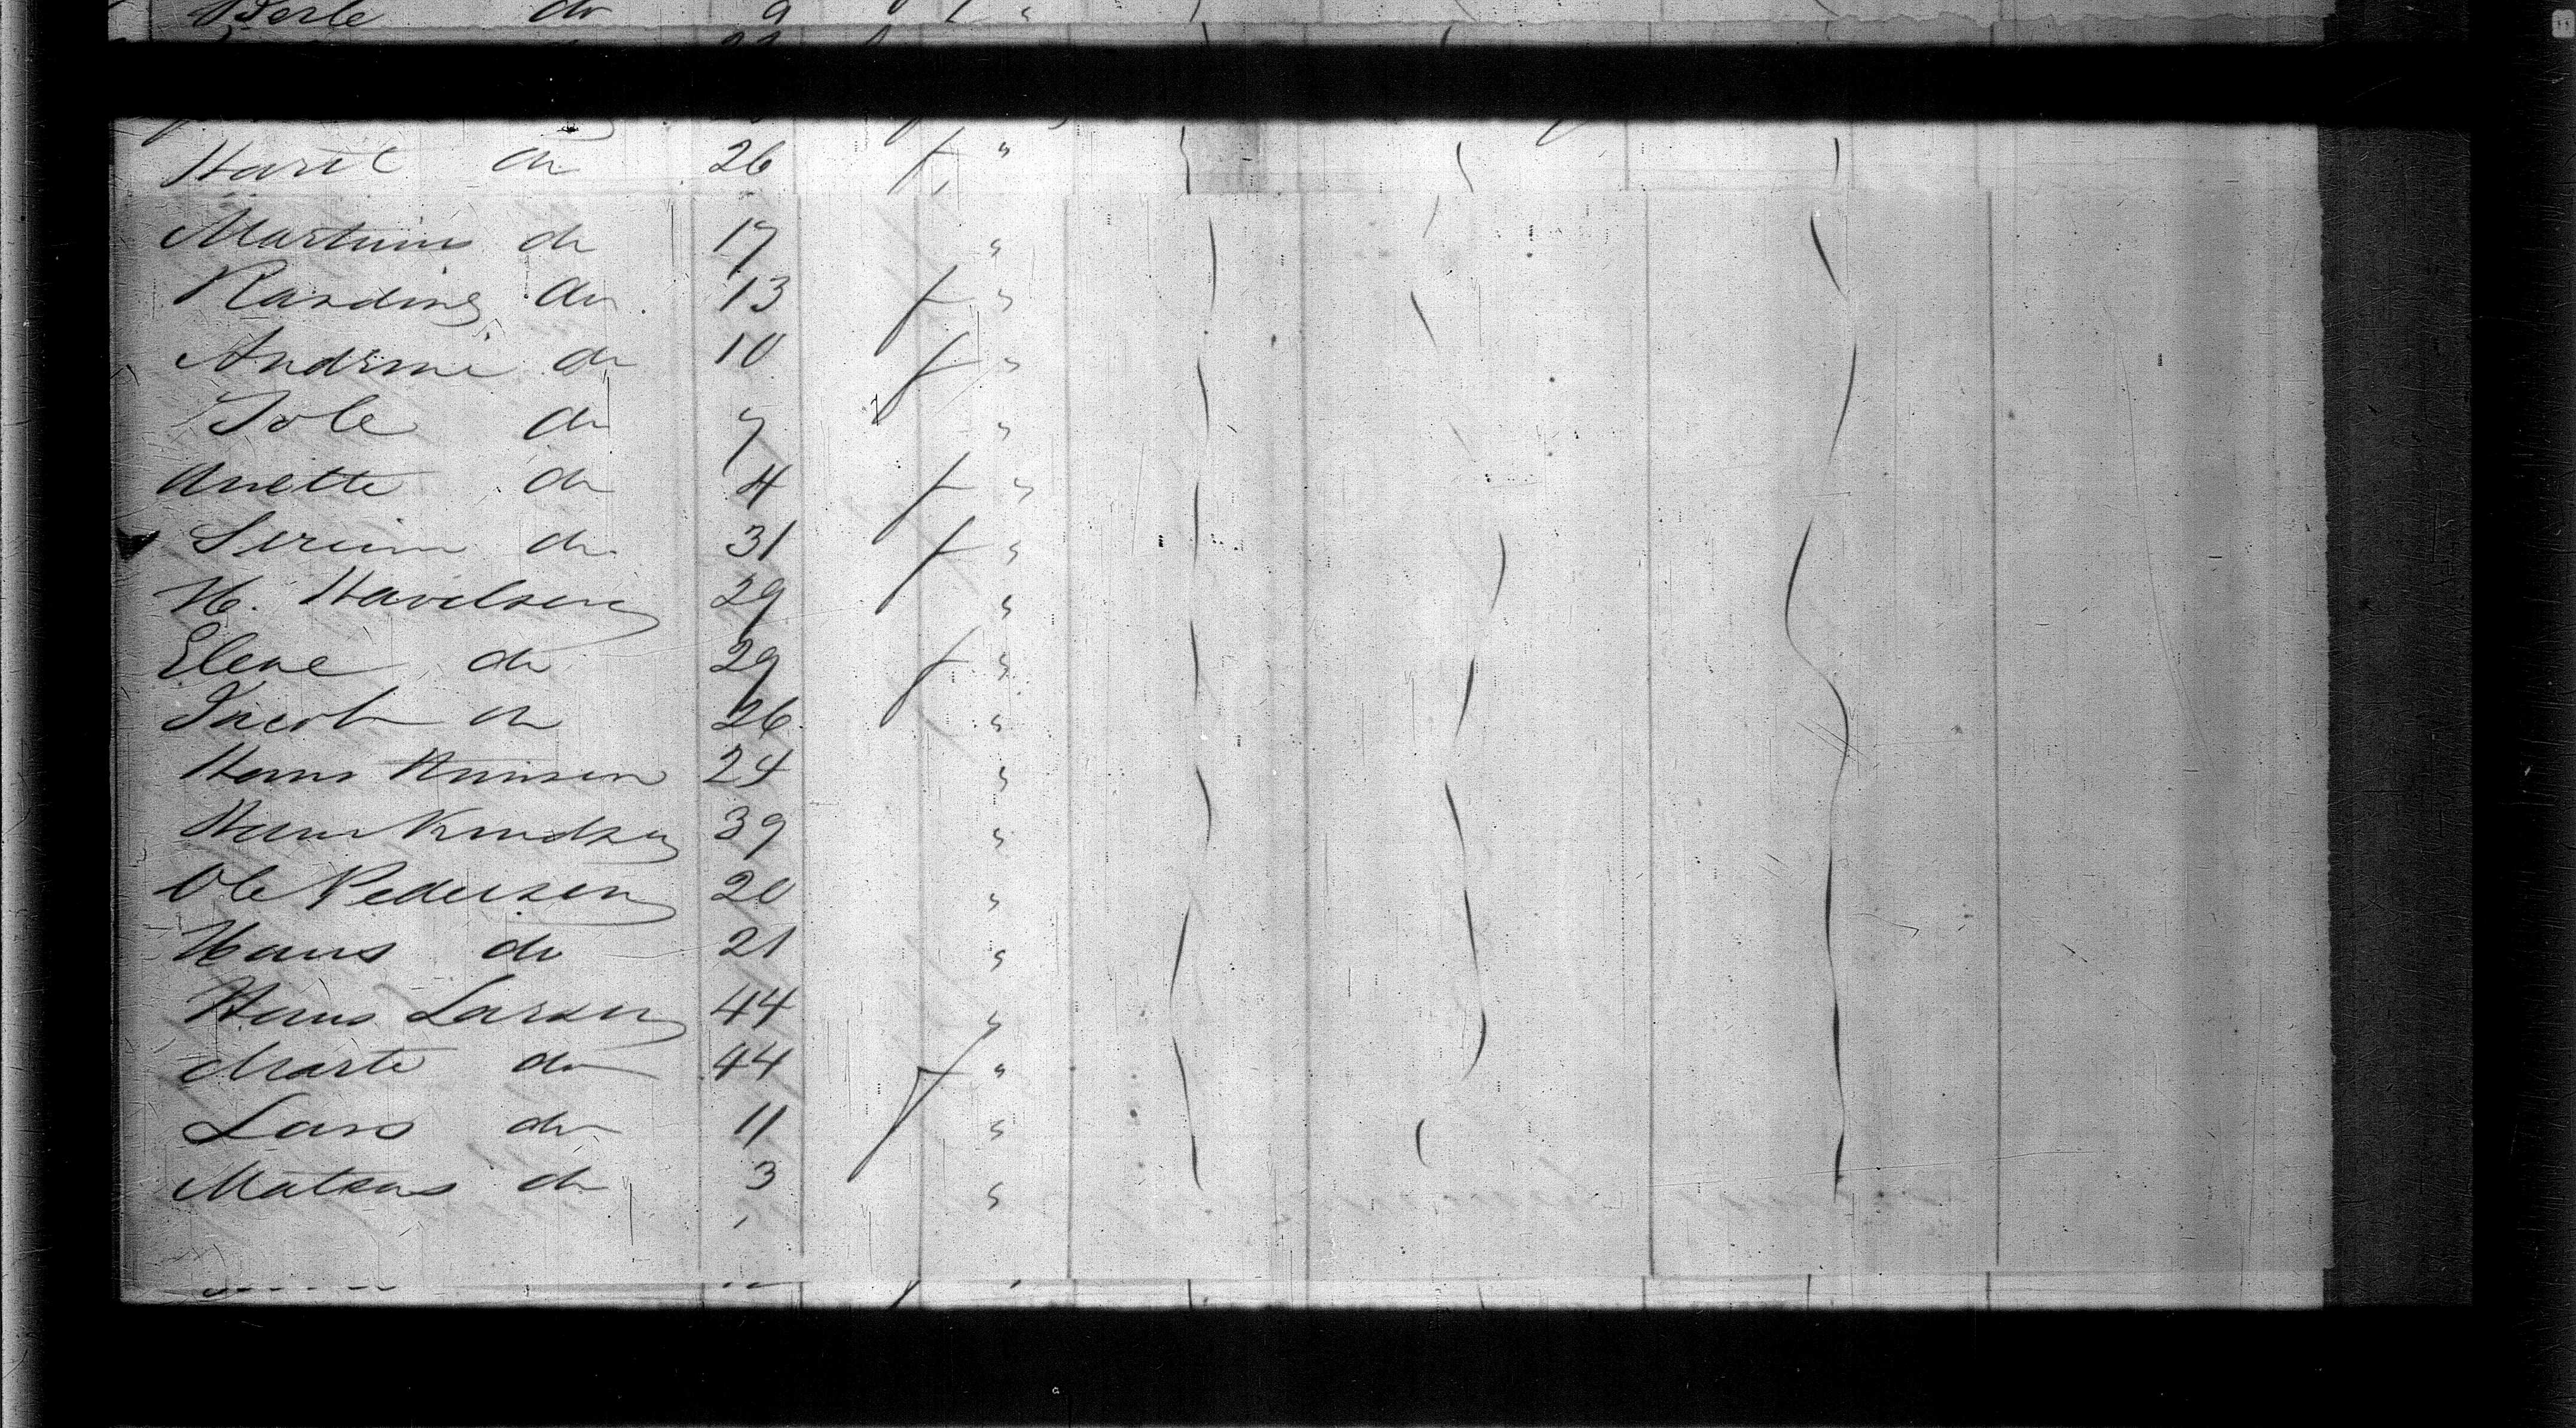 Berle do 9 f "
Marit do 26 f "
Martinus do 17 "
Randine do 13 f "
Andrine do 10 f "
Tole do 7 "
Anette do 4 f "
Serine do 31 f "
H. Havelsen 29 "
Elene do 29 f "
Jacob do 26 "
Hans Hansen 24 "
Hans Knudsen 39 "
Ole Pedersen 20 "
Hans do 21 "
Hans Larsen 44 "
Marte do 44 f "
Lars do 11 "
Mateas do 3 "